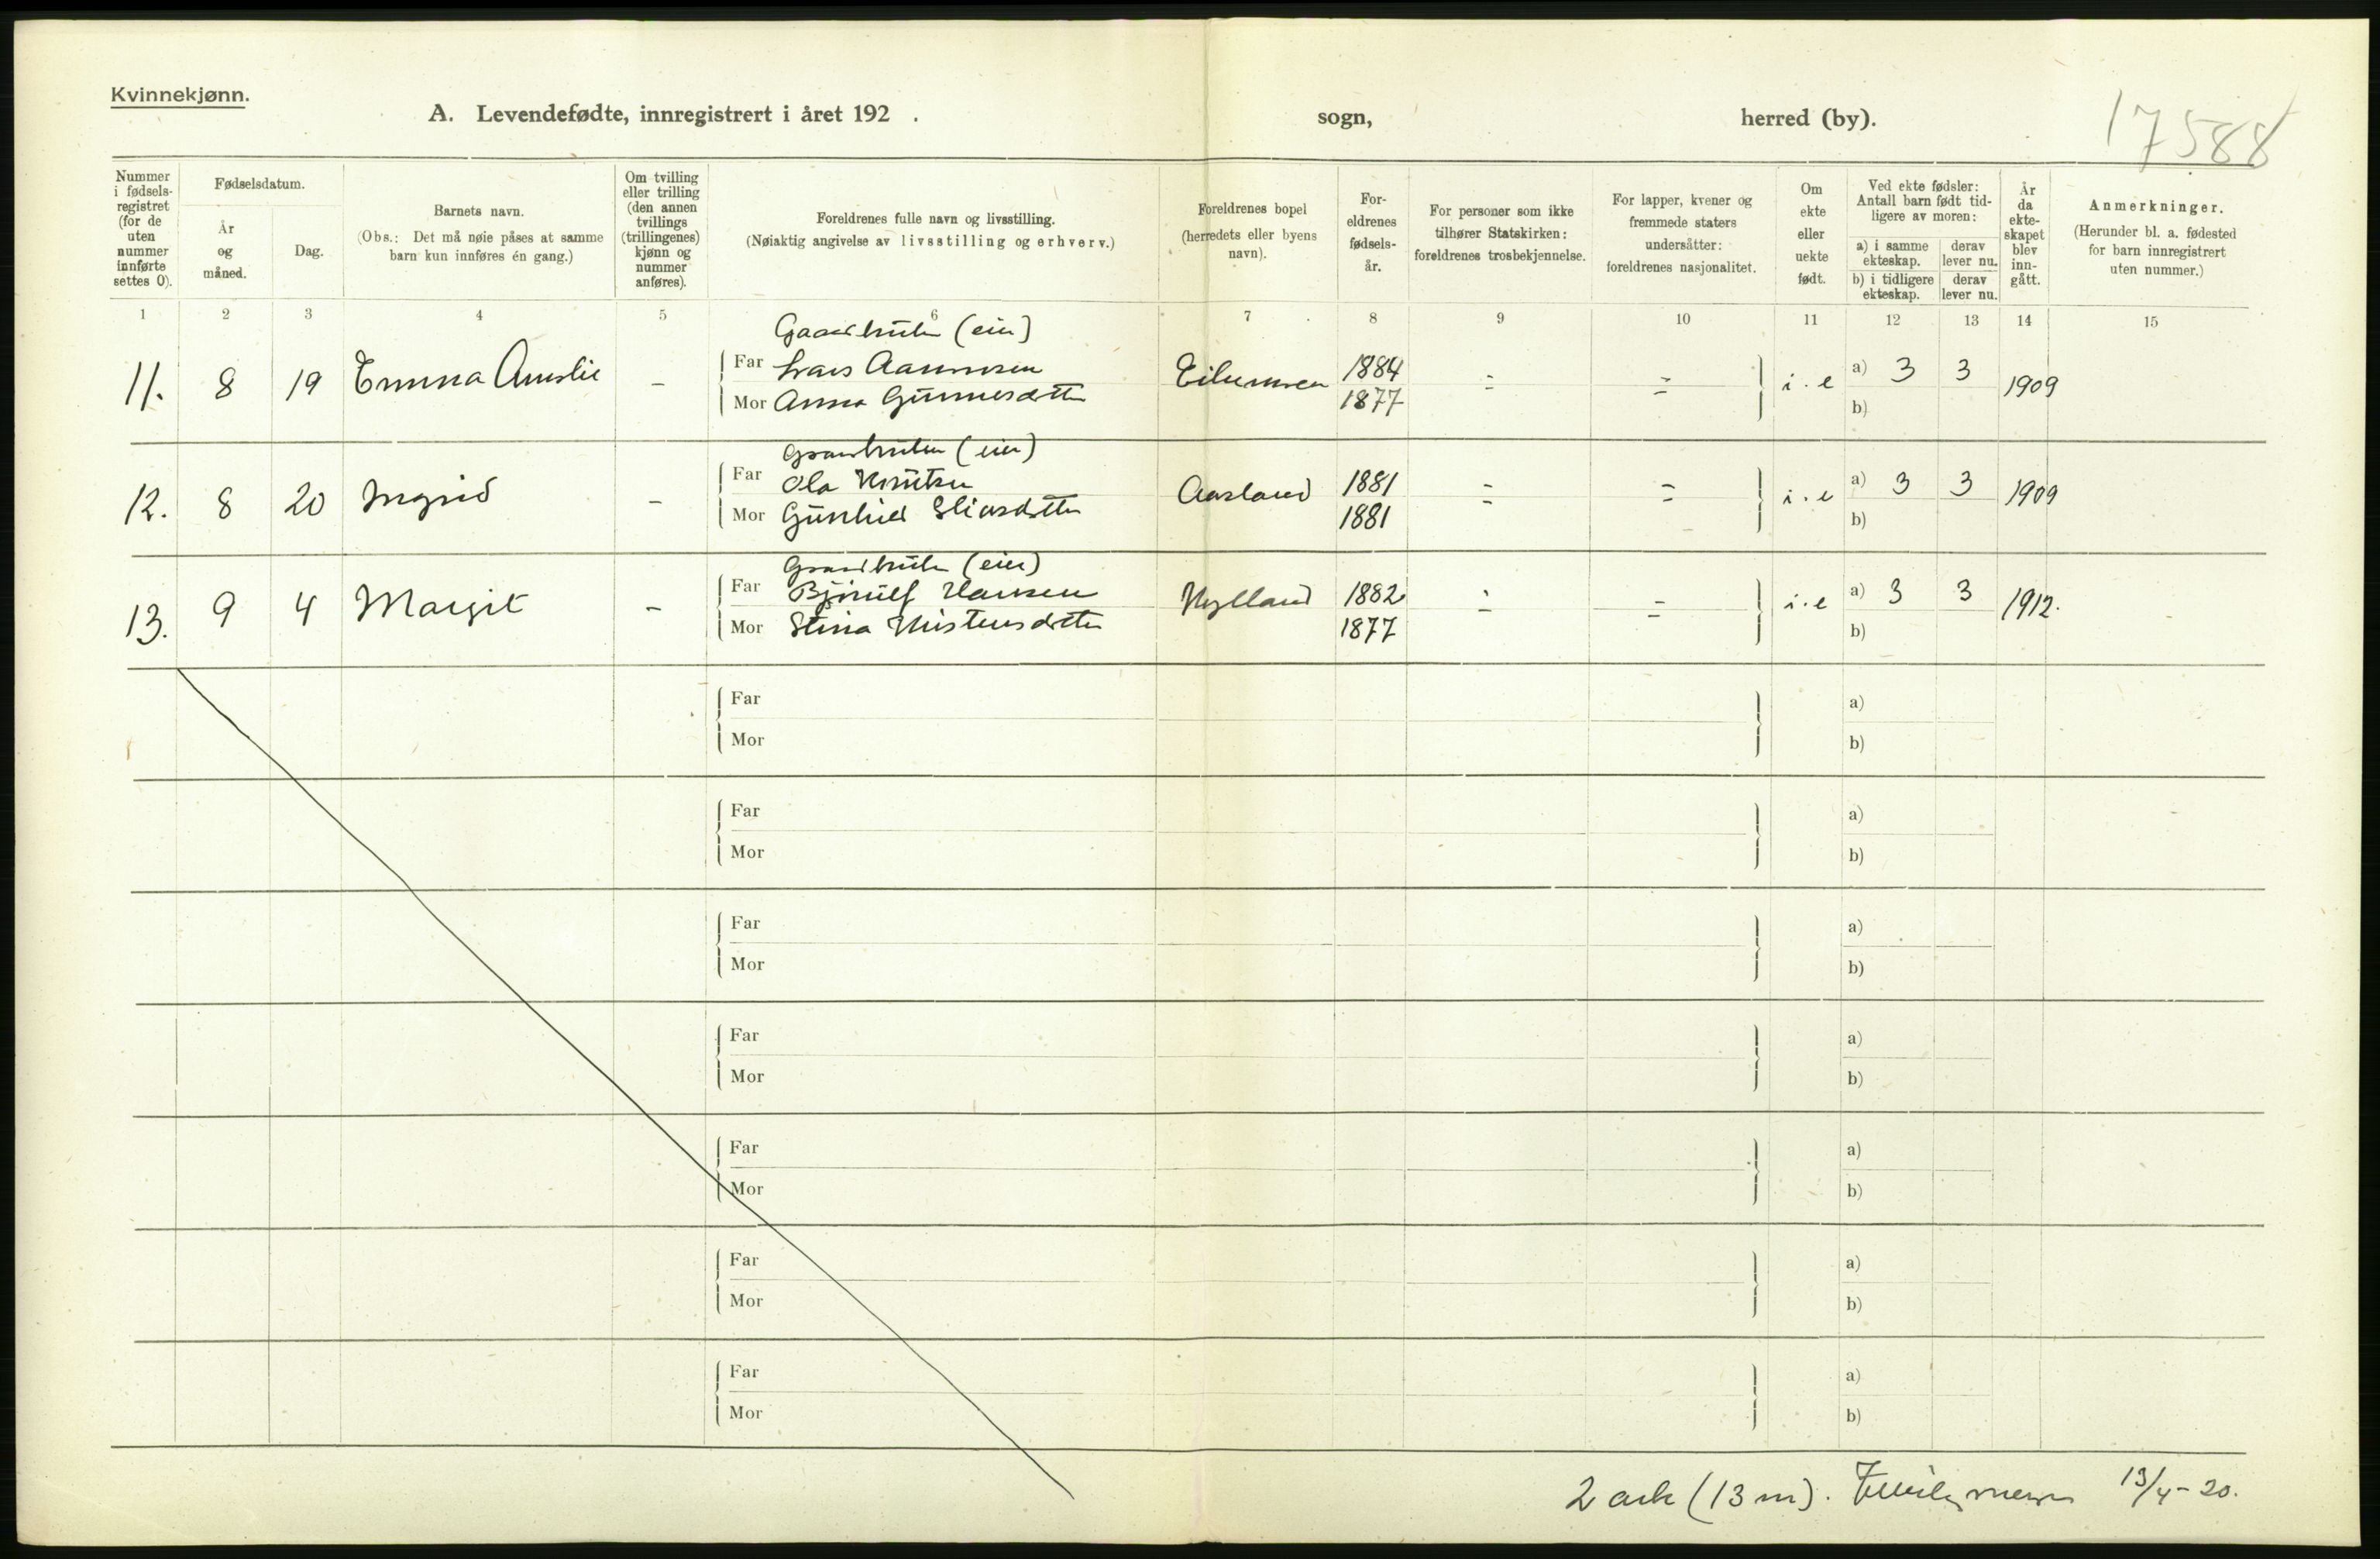 Kvinnekjønn.
A. Levendefødte, innregistrert i året 192 . sogn, herred (by).
17588
Nummer i fødsels-registret (for de uten nummer innførte settes 0).
Fødselsdatum.
År og måned.
Dag.
Barnets navn.
(Obs.: Det må nøie påses at samme barn kun innføres én gang.)
Om tvilling eller trilling (den annen tvillings (trillingenes) kjønn og nummer anføres).
Foreldrenes fulle navn og livsstilling.
(Nøiaktig angivelse av livsstilling og erhverv.)
Foreldrenes bopel (herredets eller byens navn).
For-eldrenes fødsels-år.
For personer som ikke tilhører Statskirken: foreldrenes trosbekjennelse.
For lapper, kvener og fremmede staters undersåtter: foreldrenes nasjonalitet.
Om ekte eller uekte født.
Ved ekte fødsler: Antall barn født tid-ligere av moren:
a) i samme ekteskap.
derav lever nu.
b) i tidligere ekteskap.
derav lever nu.
År da ekte-skapet blev inn-gått.
Anmerkninger.
(Herunder bl. a. fødested for barn innregistrert uten nummer.)
1 2 3 4 5 6 7 8 9 10 11 12 13 14 15
(eier)
11. 8 19 Emma Amelie - Far Lars 1884 = = i.e a) 3 3 1909
Mor Anna Gunnesdtter 1877 b)
(eier)
12. 8 20 Ingrid - Far Ola Knutsen Aasland 1881 = = i.e a) 3 3 1909
Mor Gunhild Eliasdtter 1881 b)
(eier)
13. 9 4 Margit - Far Bjønulf Hansen Nylland 1882 = = i.e a) 3 3 1912.
Mor Stina Kristensdtter 1877 b)
Far a)
Mor b)
Far a)
Mor b)
Far a)
Mor b)
Far a)
Mor b)
Far a)
Mor b)
Far a)
Mor b)
Far a)
Mor b)
2 ark (13 m). 13/4-20.